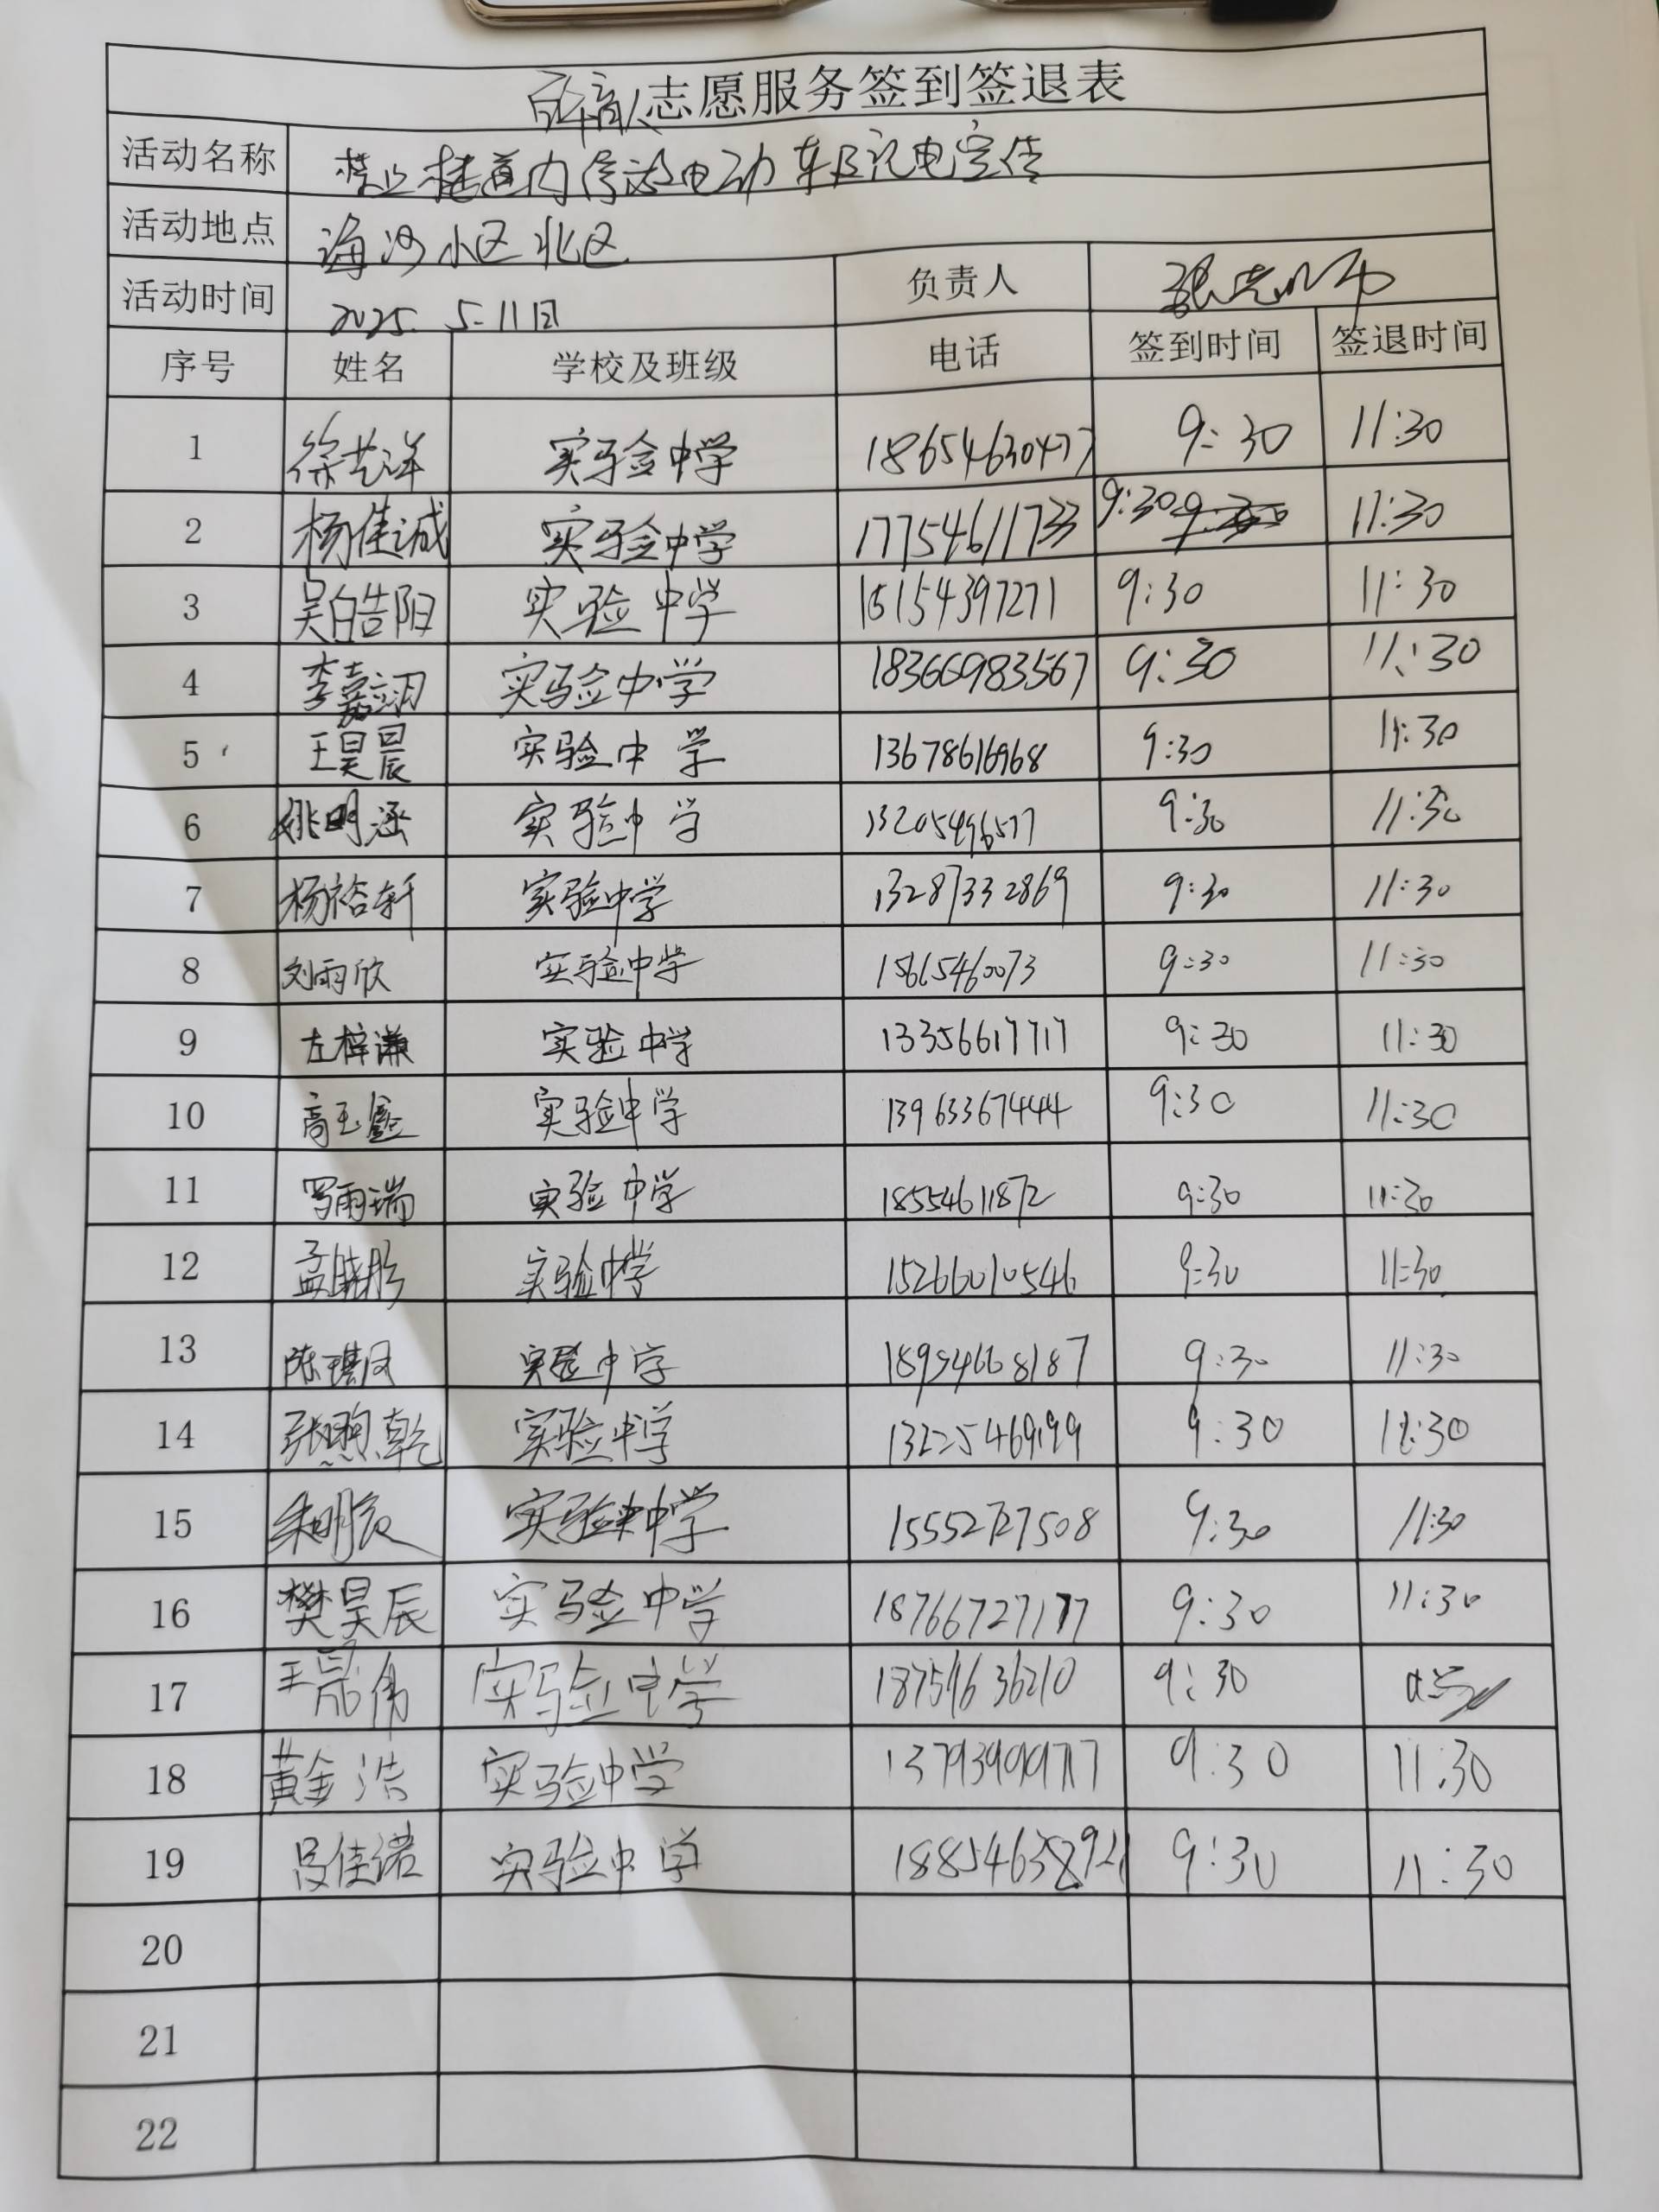 志愿服务签到签退表
活动名称 禁止楼道内停放电动车及充电宣传
活动地点 海沙小区北区
活动时间 2025.5-11日 负责人
序号 姓名 学校及班级 电话 签到时间 签退时间
1 徐艺洋 实验中学 18654630477 9:30 11:30
2 杨佳诚 实验中学 17754611733 9:30 11:30
3 吴皓阳 实验中学 9:30 11:30
4 李嘉翊 实验中学 18366983567 9:30 11:30
5 王昊晨 实验中学 13678616968 9:30 11:30
6 姚明涵 实验中学 13205496577 9:30 11:30
7 杨裕轩 实验中学 13287332869 9:30 11:30
8 刘雨欣 实验中学 15615460073 9:30 11:30
9 左梓谦 实验中学 13356617717 9:30 11:30
10 高玉鑫 实验中学 13963367444 9:30 11:30
11 罗雨瑞 实验中学 18554611872 9:30 11:30
12 实验中学 15266010546 9:30 11:30
13 实验中学 18954668187 9:30 11:30
14 实验中学 13225469199 9:30
15 朱明辰 实验中学 15552727508 9:30 11:30
16 樊昊辰 实验中学 18766727177 9:30 11:30
17 实验中学 9:30
18 黄金浩 实验中学 9:30 11:30
19 吕佳诺 实验中学 9:30 11:30
20
21
22